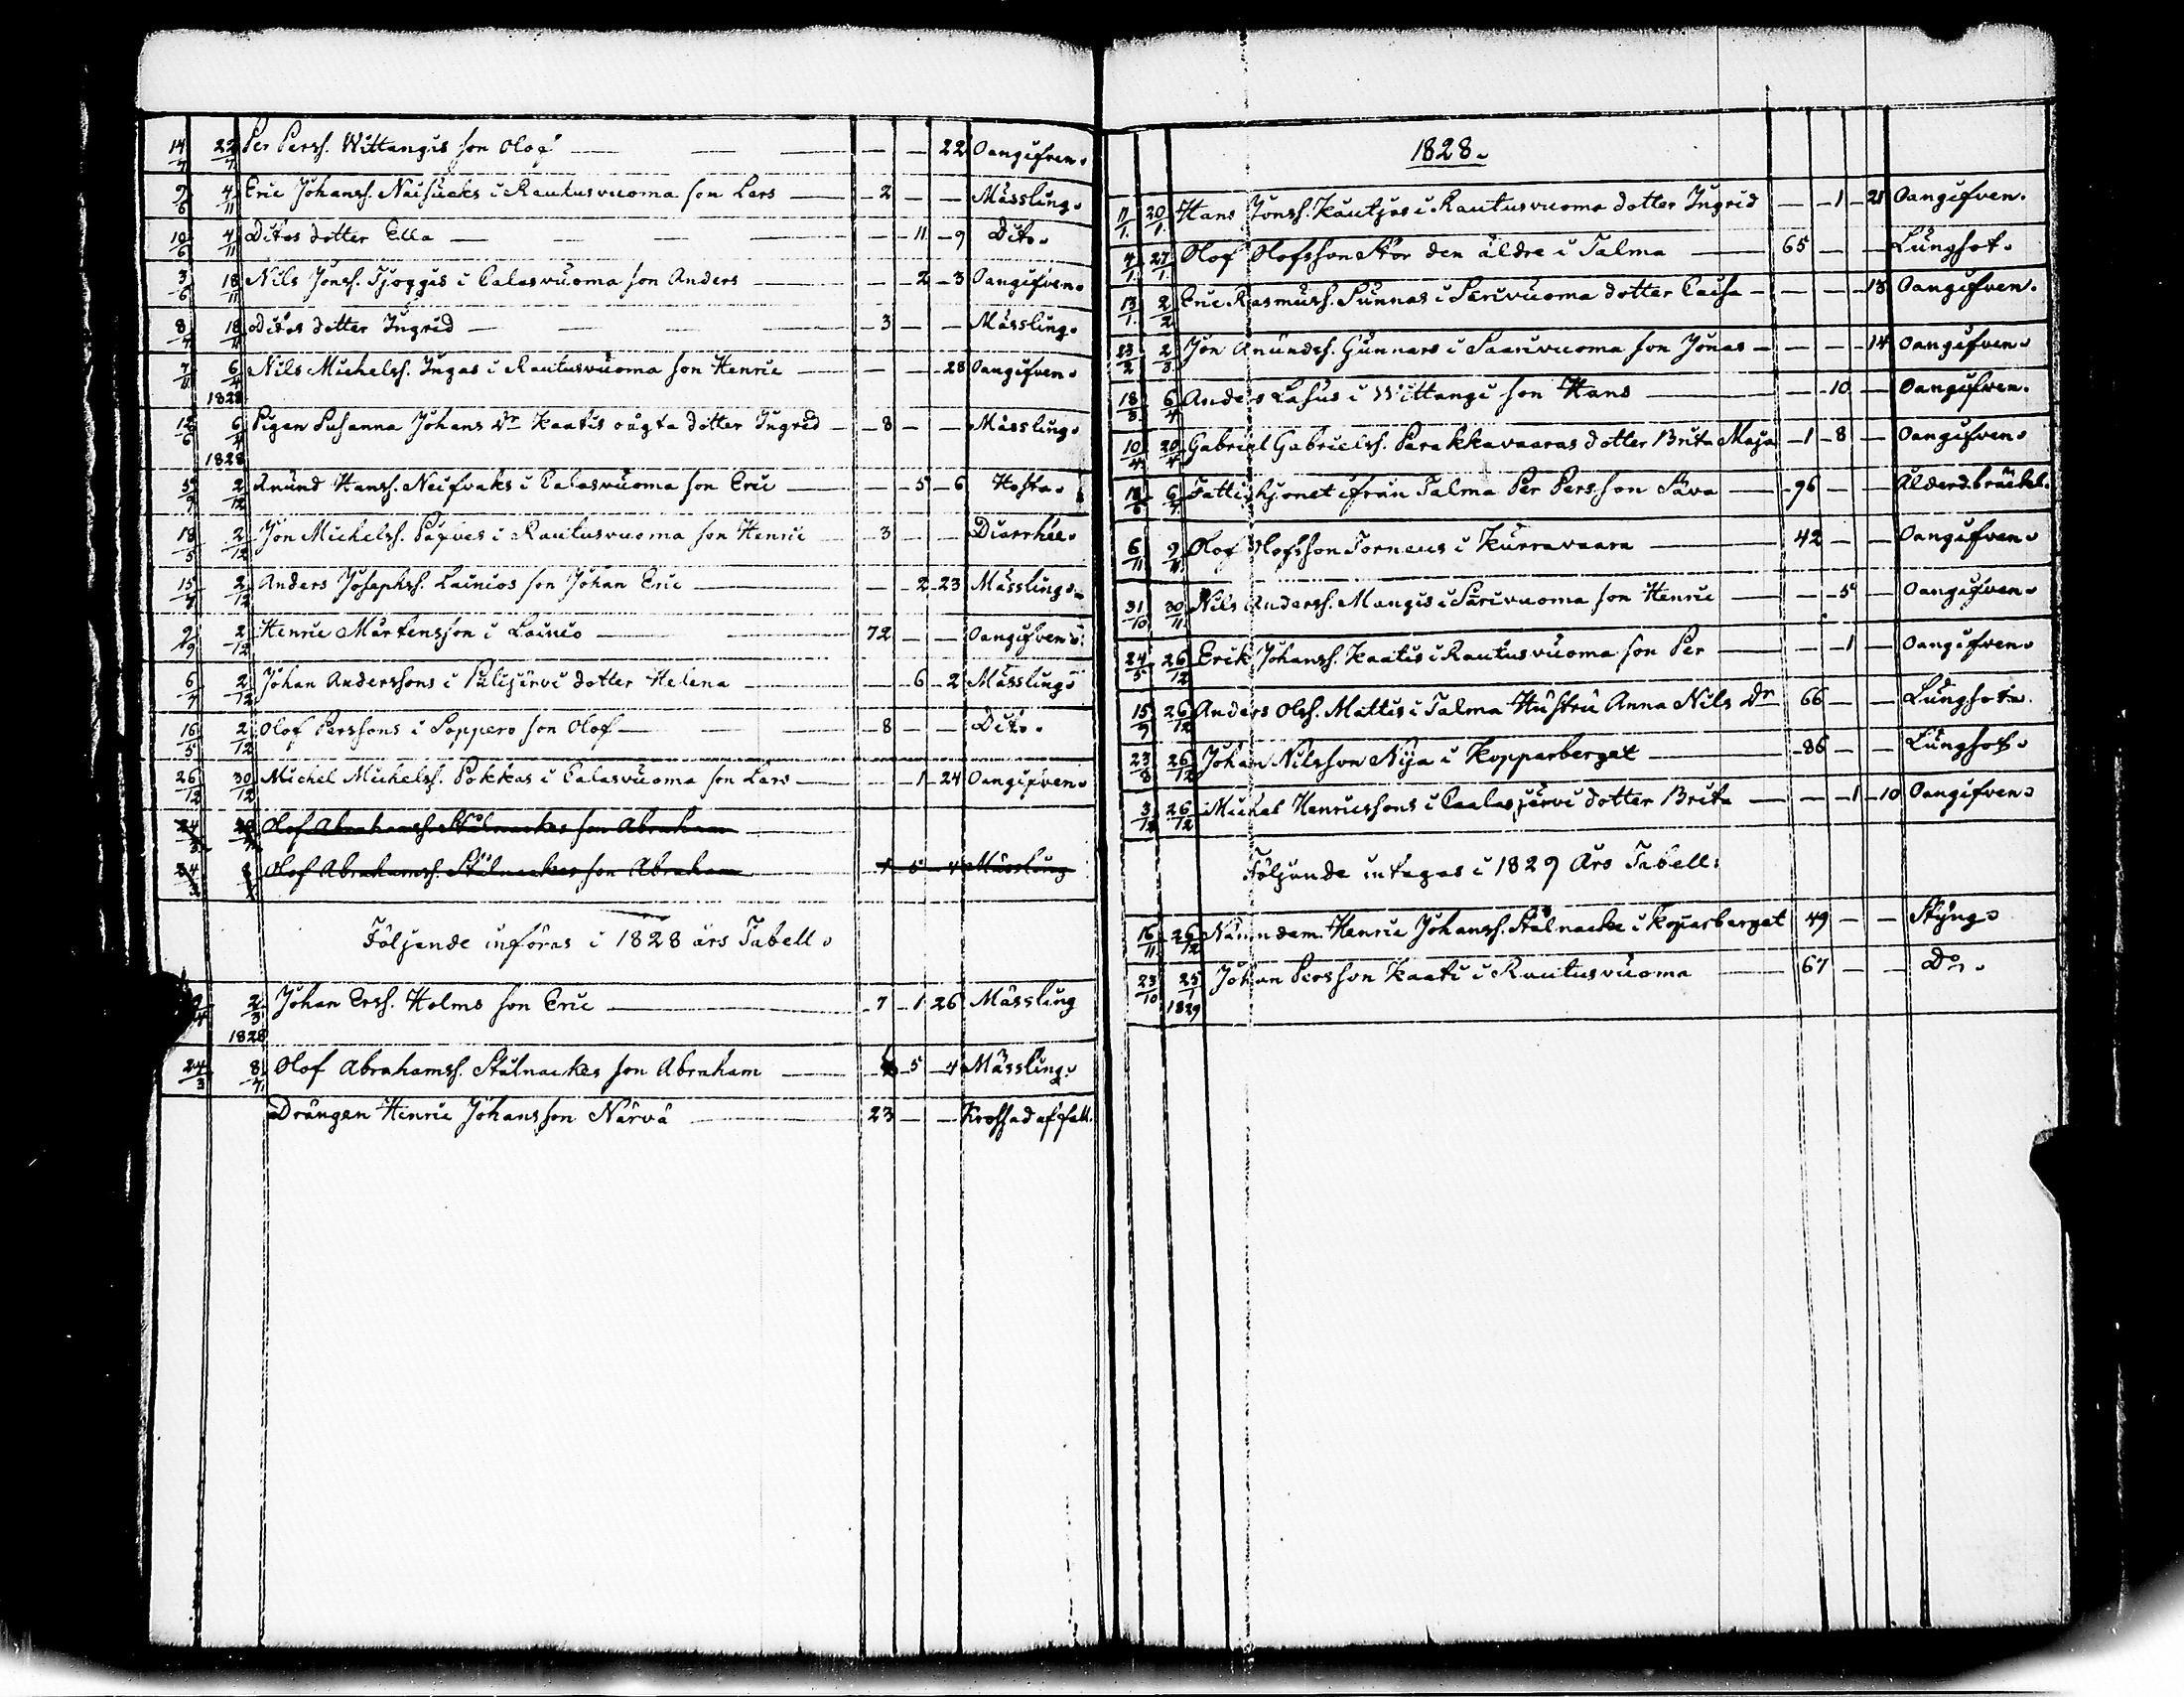 14/7 22/7 Per Perss. Wittangis son Olof — — 22 Oangifven.
9/6 4/11 Eric Johanss. Naisucks i Rautusvuoma son Lars 2 — — Mässling.
10/6 4/11 Ditos dotter Ella — 11 9 Dito.
3/6 18/11 Nils Jonss. Tjoggis i Calasvuoma son Anders — 2 3 Oangifven.
8/7 18/11 Ditos dotter Ingrid 3 — — Mässling.
7/11 6/4 1828 Nils Michelss. Ingas i Rautusvuoma son Henric — — 28 Oangifven.
12/6 6/4 1828 Pigan Susanna Johans Dr Kaatis oägta dotter Ingrid 8 — — Mässling.
5/9 2/12 Anund Hanss. Neifvaks i Calasvuoma son Eric — 5 6 Hosta.
18/5 2/12 Jon Michelss. Päfves i Rautusvuoma son Henric 3 — — Diarrhée.
15/7 2/12 Anders Josephss. Lainios son Johan Eric — 2 23 Mässling.
9/9 2/12 Henric Mårtensson i Lainio 72 — — Oangifven.
6/7 2/12 Johan Anderssons i Pulijärvi dotter Helena — 6 2 Mässling.
16/5 2/12 Olof Perssons i Soppero son Olof 8 — — Dito.
26/12 30/12 Michel Michelss. Pokkas i Calasvuoma son Lars — 1 24 Oangifven.
Olof Abrahamss. Stålnackes son Abraham
24/3 8/7 Olof Abrahamss. Stålnackes son Abraham 1 5 4 Mässling
Följande införas i 1828 års Tabell.
9/4 2/3 1828 Johan Erss. Holms son Eric 7 1 26 Mässling
24/3 8/7 Olof Abrahamss. Stålnackes son Abraham 5 4 Mässling.
Drängen Henric Johansson Närvä 23 — — Krossad af fall.
1828.
11/1 20/1 Hans Jonss. Kautjas i Rautusvuoma dotter Ingrid — 1 21 Oangifven.
4/1 27/1 Olof Olofsson Stor den äldre i Talma 65 — — Lungsot.
13/1 2/2 Eric Rasmuss. Sunnas i Sarivuoma dotter Caisa — — 15 Oangifven.
23/2 2/3 Jon Anundss. Gunnars i Saarivuoma son Jonas — — 14 Oangifven.
18/3 6/4 Anders Lasus i Wittangi son Hans — 10 — Oangifven.
10/4 20/4 Gabriel Gabrielss. Parakkavaaras dotter Brita Maja 1 8 — Oangifven.
18/6 6/7 Fattighjonet ifrån Talma Per Persson Säva 96 — — Ålderd.bräckl.
6/11 9/11 Olof Olofsson Torneus i Kurravaara 42 — — Oangifven.
31/10 30/11 Nils Anderss. Mangis i Sarivuoma son Henric — 5 — Oangifven.
24/5 26/12 Erik Johanss. Kaatis i Rautusvuoma son Per — 1 — Oangifven.
15/9 26/12 Anders Olss. Mattis i Talma Hustru Anna Nils Dr 66 — — Lungsot.
23/8 26/12 Johan Nilsson Nija i Kopparberget 86 — — Lungsot.
3/12 26/12 Michel Henricssons i Caalasjärvi dotter Brita — 1 10 Oangifven.
Följande intagas i 1829 Års Tabell:
16/11 26/12 Nämndem. Henric Johanss. Stålnacke i Koparberget 49 — — Styng.
23/10 25/1 1829 Johan Persson Kaati i Rautusvuoma 67 — — Do.